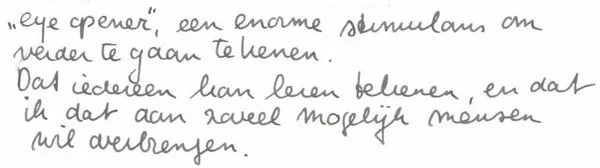 „eye opener”, een enorme stimulans om
verder te gaan tekenen.
Dat iedereen kan leren tekenen, en dat
ik dat aan zoveel mogelijk mensen
wil overbrengen.